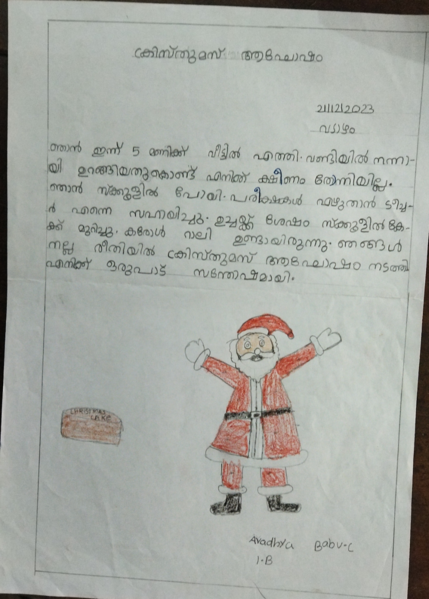 ക്രിസ്തുമസ് ആഘോഷം
21/12/2023
വ്യാഴം
ഞാൻ ഇന്ന് 5 മണിക്ക് വീട്ടിൽ എത്തി. വണ്ടിയിൽ നന്നാ-
യി ഉറങ്ങിയതുകൊണ്ട് എനിക്ക് ക്ഷീണം തോന്നിയില്ല.
ഞാൻ സ്ക്കൂളിൽ പോയി. പരീക്ഷകൾ എഴുതാൻ ടീച്ച-
ർ എന്നെ സഹായിച്ചു. ഉച്ചയ്ക്ക് ശേഷം സ്ക്കൂളിൽ കേ-
ക്ക് മുറിച്ചു. കരോൾ റാലി ഉണ്ടായിരുന്നു. ഞങ്ങൾ
നല്ല രീതിയിൽ ക്രിസ്തുമസ് ആഘോഷം നടത്തി.
എനിക്ക് ഒരുപാട് സന്തോഷമായി.
CHRISTMAS
CAKE
Avadhya Babu-C
1-B